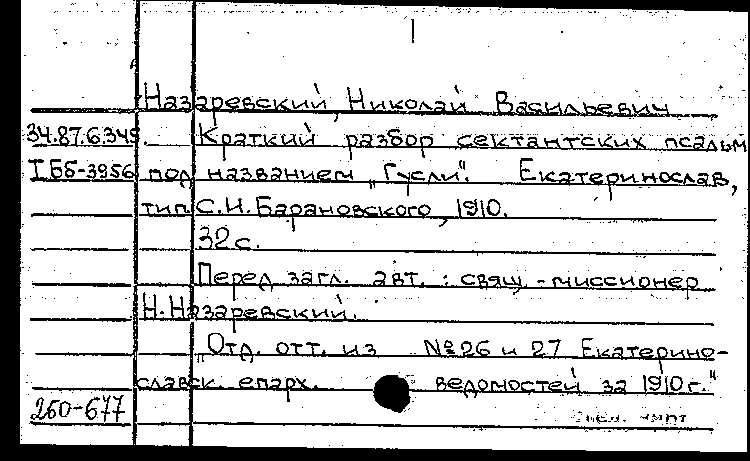 Назаревский, Николай Васильевич
34.87.6.349. Краткий разбор сектантских псальм
I Бб-3956 под названием „Гусли". Екатеринослав,
тип. С.И. Барановского, 1910.
32 с.
Перед загл. авт.: свящ.-миссионер
Н. Назаревский.
„Отд. отт. из №26 и 27 Екатерино-
славск. епарх. ведомостей за 1910 г."
260-677